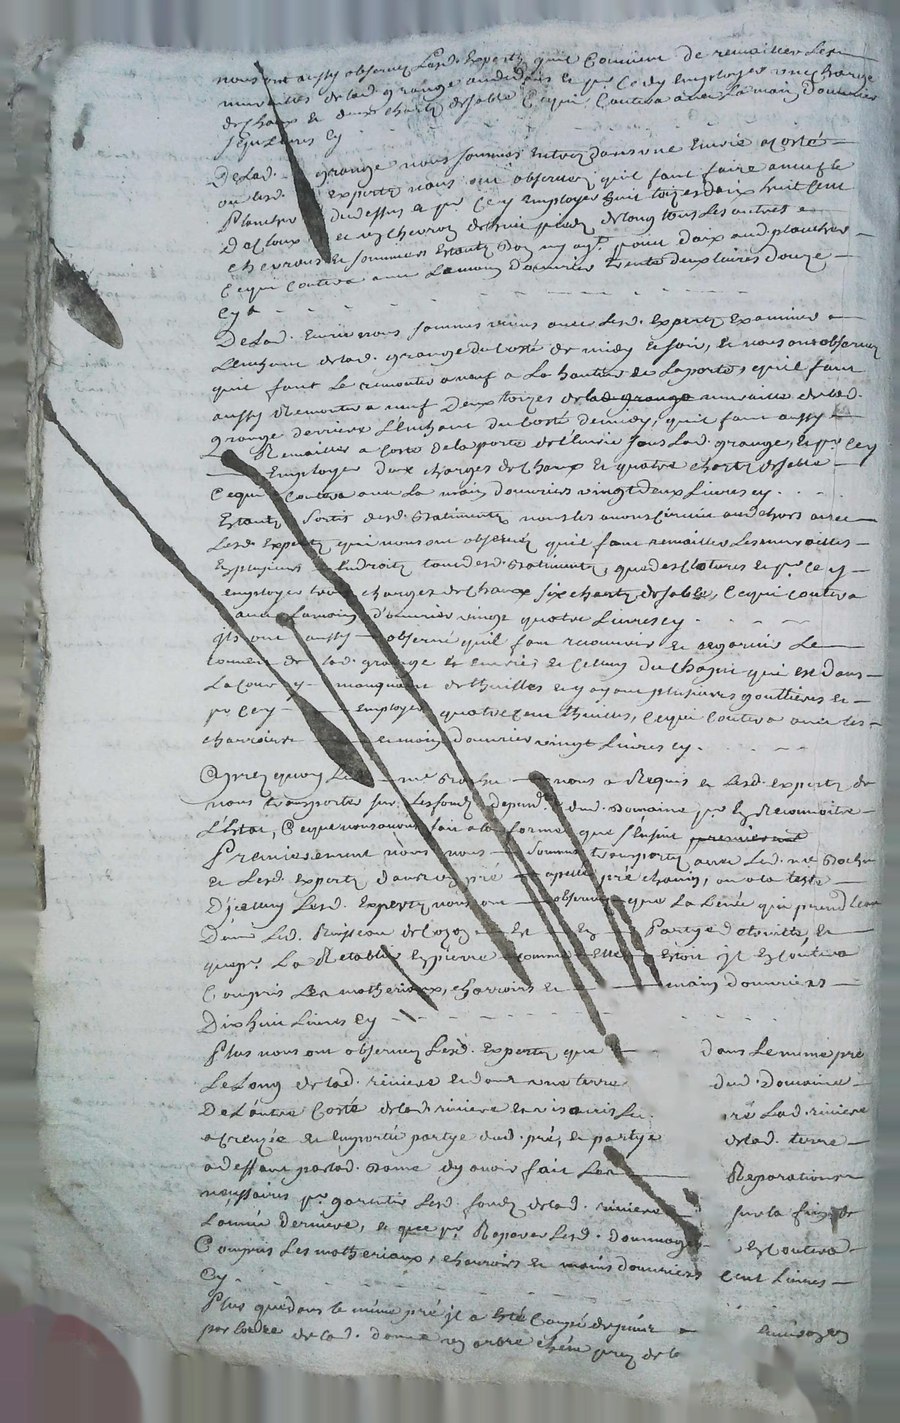 nous ont aussy observez Lesd. Experts qu'il Convient de remailler Les
murailles de lad. grange au dedans et pr. Ce dy Employer une charge
de chaux et deux charts de sable Ce qui Coutera avec La main d'ouvrier
sept Livres Cy
De Lad. grange nous sommes Entrez dans une Ecurie a Costé
ou Lesd. Experts nous ont observez qu'il faut faire a neuf le
Plancher du dessus et pr. Ce y Employer huit toizes d'aix huit Cent
De Cloux et chevrons de huit pieds de long tous Les autres
chevrons et sommiers Estants pour d'aix aud. plancher
Ce qui Coutera avec La main d'ouvrier trente deux livres douze
Cy
De Lad. Ecurie nous sommes venus avec Lesd. Experts Examiner
L'enchant de lad. grange du Costé de midy et soir, et nous ont observez
qu'il faut Le remonter a neuf a La hauteur de La porte, qu'il faut
aussy Remonter a neuf Deux toizes de la grange muraille de lad.
grange derriere L'Enchant du Costé de midy, qu'il faut aussy
Remailler a Costé de la porte de l'Ecurie sous Lad. grange, et pr. Ce y
Employer deux charges de chaux et quatre charts de sable
Ce qui Coutera avec La main d'ouvriers vingt deux Livres cy.
Estants Sortis desd. Batiments nous les avons au dehors avec
Lesd. Experts qui nous ont observez qu'il faut remailler Les murailles
En plusieurs Endroits tant desd. Batiments, que des Clotures et pr. Ce y
employer trois charges de Chaux six charts de sable, Ce qui Coutera
avec La main d'ouvrier vingt quatre Livres cy.
Ils ont aussy observé qu'il faut recouvrir et regarnir Le
Couvert de lad. grange et ecuries et Celuy du Chapit qui est dans
La Cour y manquant de thuilles et y ayant plusieurs gouttieres et
pr. Ce y employer quatre Cent thuilles, Ce qui Coutera avec les
charroirs et main d'ouvrier vingt Livres cy.
Apres quoy Led. me Rochu nous a Requis et Lesd. experts de
nous transporter sur Les fonds depend. dud. Domaine pr. En Reconnoitre
L'Estat, Ce que nous avons fait a la forme que s'Ensuit premierement
Premierement nous nous sommes transportez avec Led. me Rochu
et Lesd. Experts dans un pré apellé pré chanin, ou a la teste
D'icelluy Lesd. Experts nous ont observez que La Levée qui prend L'eau
Dans Led. Ruisseau de est En Partye détruitte, et
que pr. La Retablir En pierre Comme Elle Etoit il En Coutera
Compris Les matheriaux, charroirs et main d'ouvriers
Dix huit Livres Cy
Plus nous ont observez Lesd. Experts que dans Le meme pré
Le Long de lad. riviere et dans une terre dud. Domaine
De L'autre Costé de lad. riviere ré Lad. riviere
a Creuzée et Emporté partye dud. pré, et partye de lad. terre
a deffaut par lad. Dame d'y avoir fait Les Reparations
necessaires pr. garantir Lesd. fonds de lad. riviere sur la fin de
L'année derniere, et que pr. Reparer Lesd. dommages En Coutera
Compris Les matheriaux, charroirs et mains d'ouvriers Cent Livres
Cy.
Plus que dans le même pré il a Eté Coupé depuis
par L'ordre de lad. dame un arbre chêne pres de la